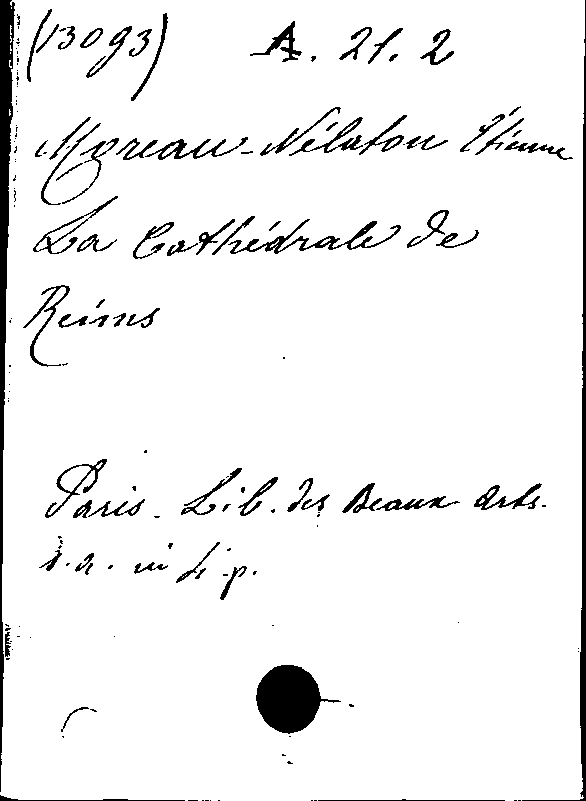 (13093) A. 21. 2
Moreau-Nélaton Étienne
La Cathédrale de
Reims
Paris. Lib. des Beaux Arts.
s.a. in 4° p.